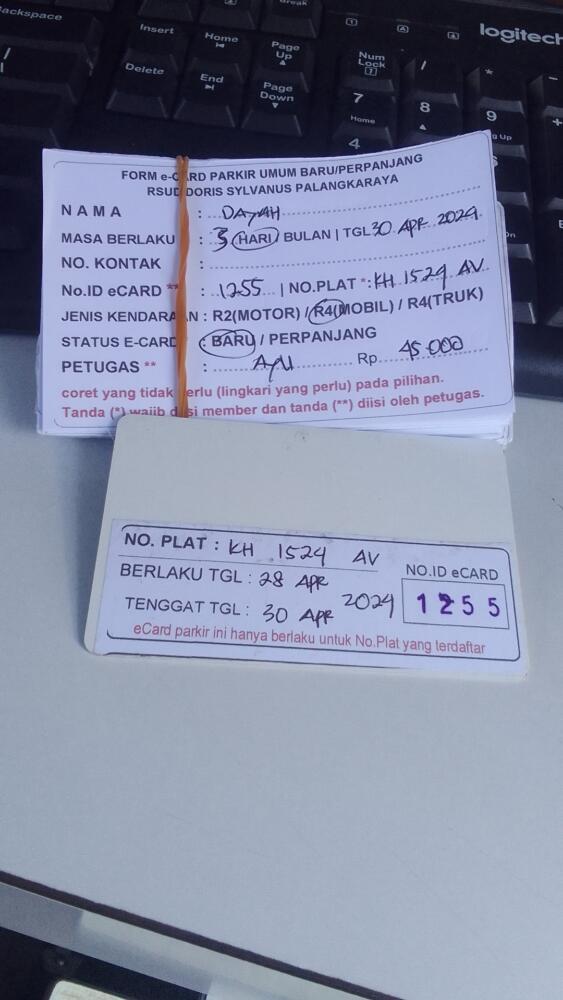 Backspace
Insert
Home
Page Up
Delete
End
Page Down
Break
Num Lock
logitech
/
*
-
7
Home
8
9
+
4
FORM e-CARD PARKIR UMUM BARU/PERPANJANG
RSUD DORIS SYLVANUS PALANGKARAYA
NAMA : DAYAH
MASA BERLAKU : 3 HARI / BULAN | TGL 30 APR 2024
NO. KONTAK :
No.ID eCARD ** : 1255 | NO.PLAT *: KH 1524 AV
JENIS KENDARAAN : R2(MOTOR) / R4(MOBIL) / R4(TRUK)
STATUS E-CARD : BARU / PERPANJANG
PETUGAS ** : AYU Rp. 45.000
coret yang tidak perlu (lingkari yang perlu) pada pilihan.
Tanda (*) wajib diisi member dan tanda (**) diisi oleh petugas.
NO. PLAT : KH 1524 AV
BERLAKU TGL : 28 APR
TENGGAT TGL : 30 APR 2024
NO.ID eCARD
1255
eCard parkir ini hanya berlaku untuk No.Plat yang terdaftar